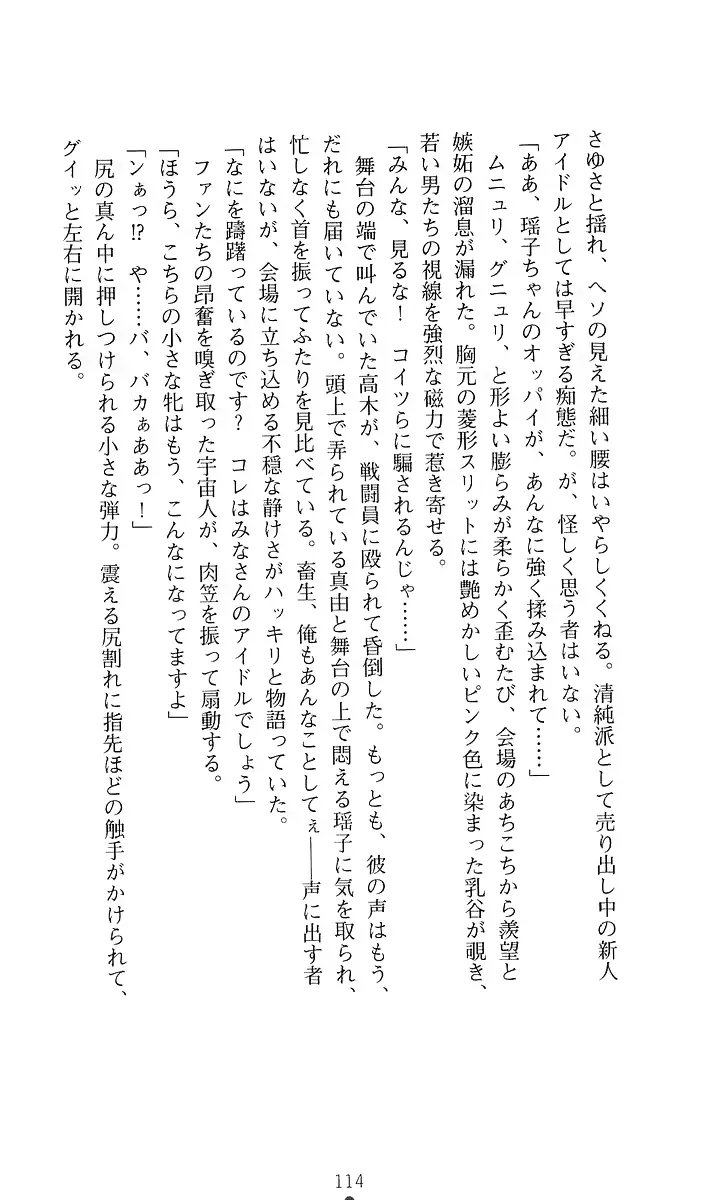 さゆさと揺れ、ヘソの見えた細い腰はいやらしくくねる。清純派として売り出し中の新人
アイドルとしては早すぎる痴態だ。が、怪しく思う者はいない。
「ああ、瑶子ちゃんのオッパイが、あんなに強く揉み込まれて……」
ムニュリ、グニュリ、と形よい膨らみが柔らかく歪むたび、会場のあちこちから羨望と
嫉妬の溜息が漏れた。胸元の菱形スリットには艶めかしいピンク色に染まった乳谷が覗き、
若い男たちの視線を強烈な磁力で惹き寄せる。
「みんな、見るな！　コイツらに騙されるんじゃ……」
舞台の端で叫んでいた高木が、戦闘員に殴られて昏倒した。もっとも、彼の声はもう、
だれにも届いていない。頭上で弄られている真由と舞台の上で悶える瑶子に気を取られ、
忙しなく首を振ってふたりを見比べている。畜生、俺もあんなことしてぇ――声に出す者
はいないが、会場に立ち込める不穏な静けさがハッキリと物語っていた。
「なにを躊躇っているのです？　コレはみなさんのアイドルでしょう」
ファンたちの昂奮を嗅ぎ取った宇宙人が、肉笠を振って扇動する。
「ほうら、こちらの小さな牝はもう、こんなになってますよ」
「ンぁっ!?　や……バ、バカぁああっ！」
尻の真ん中に押しつけられる小さな弾力。震える尻割れに指先ほどの触手がかけられて、
グイッと左右に開かれる。
114